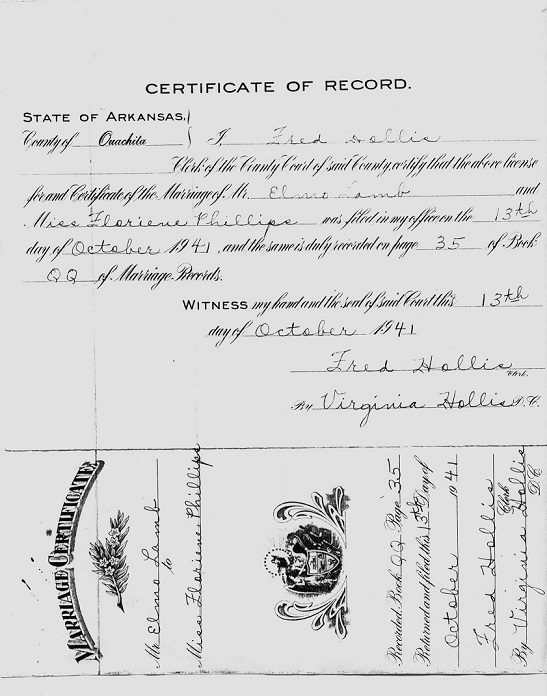 CERTIFICATE OF RECORD.
STATE OF ARKANSAS,
County of Ouachita } I, Fred Hollis
Clerk of the County Court of said County, certify that the above license
for and Certificate of the Marriage of Mr. Elmo Lamb and
Miss Floriene Phillips was filed in my office on the 13th
day of October 1941, and the same is duly recorded on page 35 of Book
QQ of Marriage Records.
WITNESS my hand and the seal of said Court this 13th
day of October 1941
Fred Hollis
Clerk.
By Virginia Hollis D.C.
MARRIAGE CERTIFICATE
Mr Elmo Lamb
to
Miss Floriene Phillips
Recorded Book QQ Page 35
Returned and filed this 13th Day of
October 1941
Fred Hollis
Clerk
By Virginia Hollis
D.C.